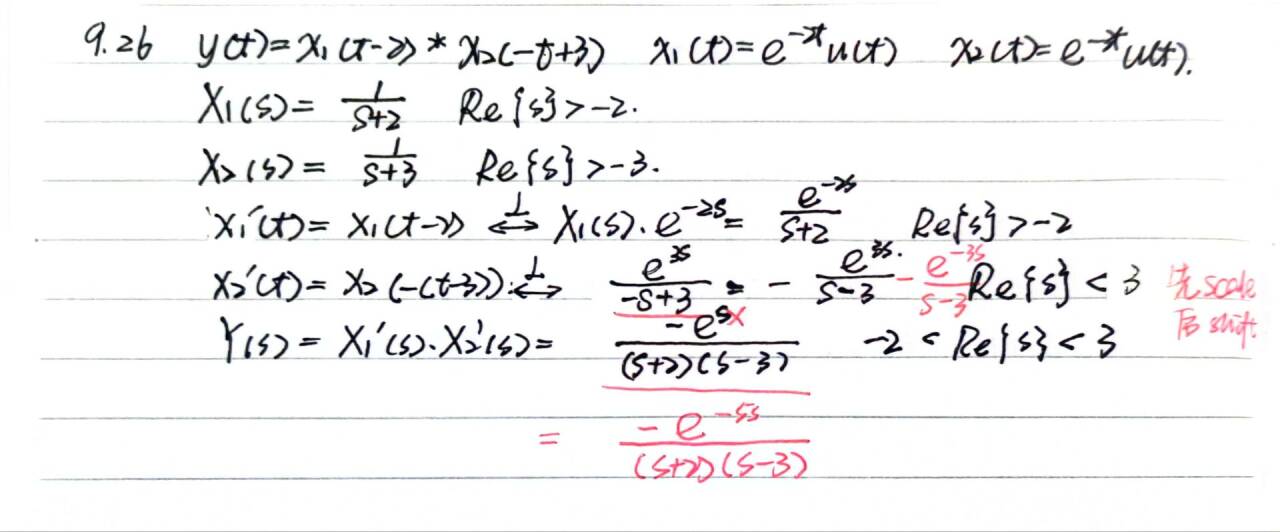 9.26 y(t)=x₁(t-2) * x₂(-t+3) x₁(t)=e^{-2t}u(t) x₂(t)=e^{-3t}u(t).
X₁(s)= 1/(s+2) Re{s}>-2.
X₂(s)= 1/(s+3) Re{s}>-3.
x₁'(t)= x₁(t-2) ⟷^L X₁(s)·e^{-2s}= e^{-2s}/(s+2) Re{s}>-2
x₂'(t)= x₂(-(t-3)) ⟷^L e^{3s}/(-s+3) = - e^{3s}/(s-3) - e^{-3s}/(s-3) Re{s}<3 先scale
后shift.
Y(s)= X₁'(s)·X₂'(s)= -e^{s}/((s+2)(s-3)) × -2<Re{s}<3
= -e^{-5s}/((s+2)(s-3))